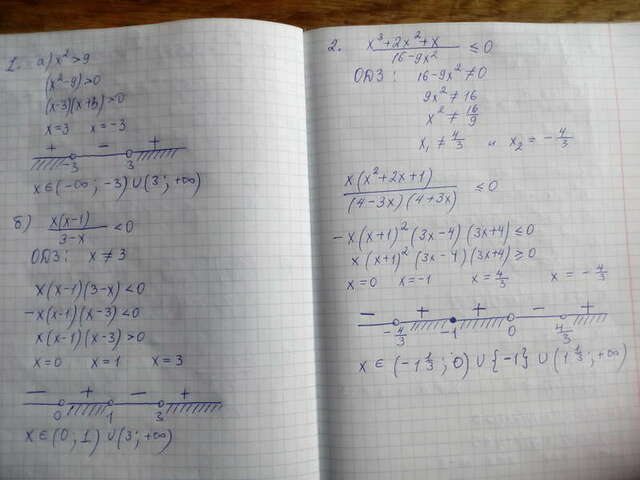 1. а) x² > 9
(x²-9)>0
(x-3)(x+3)>0
x=3 x=-3
+ - +
-3 3
x∈(-∞; -3)∪(3; +∞)
б) x(x-1)/(3-x) < 0
ОДЗ: x ≠ 3
x(x-1)(3-x)<0
-x(x-1)(x-3)<0
x(x-1)(x-3)>0
x=0 x=1 x=3
- + - +
0 1 3
x∈(0; 1)∪(3; +∞)
2. (x³+2x²+x)/(16-9x²) ≤ 0
ОДЗ: 16-9x² ≠ 0
9x² ≠ 16
x² ≠ 16/9
x₁ ≠ 4/3 и x₂ = -4/3
x(x²+2x+1)/((4-3x)(4+3x)) ≤ 0
-x(x+1)²(3x-4)(3x+4) ≤ 0
x(x+1)²(3x-4)(3x+4) ≥ 0
x=0 x=-1 x=4/3 x=-4/3
- + + - +
-4/3 -1 0 4/3
x∈(-1 1/3; 0)∪{-1}∪(1 1/3; +∞)